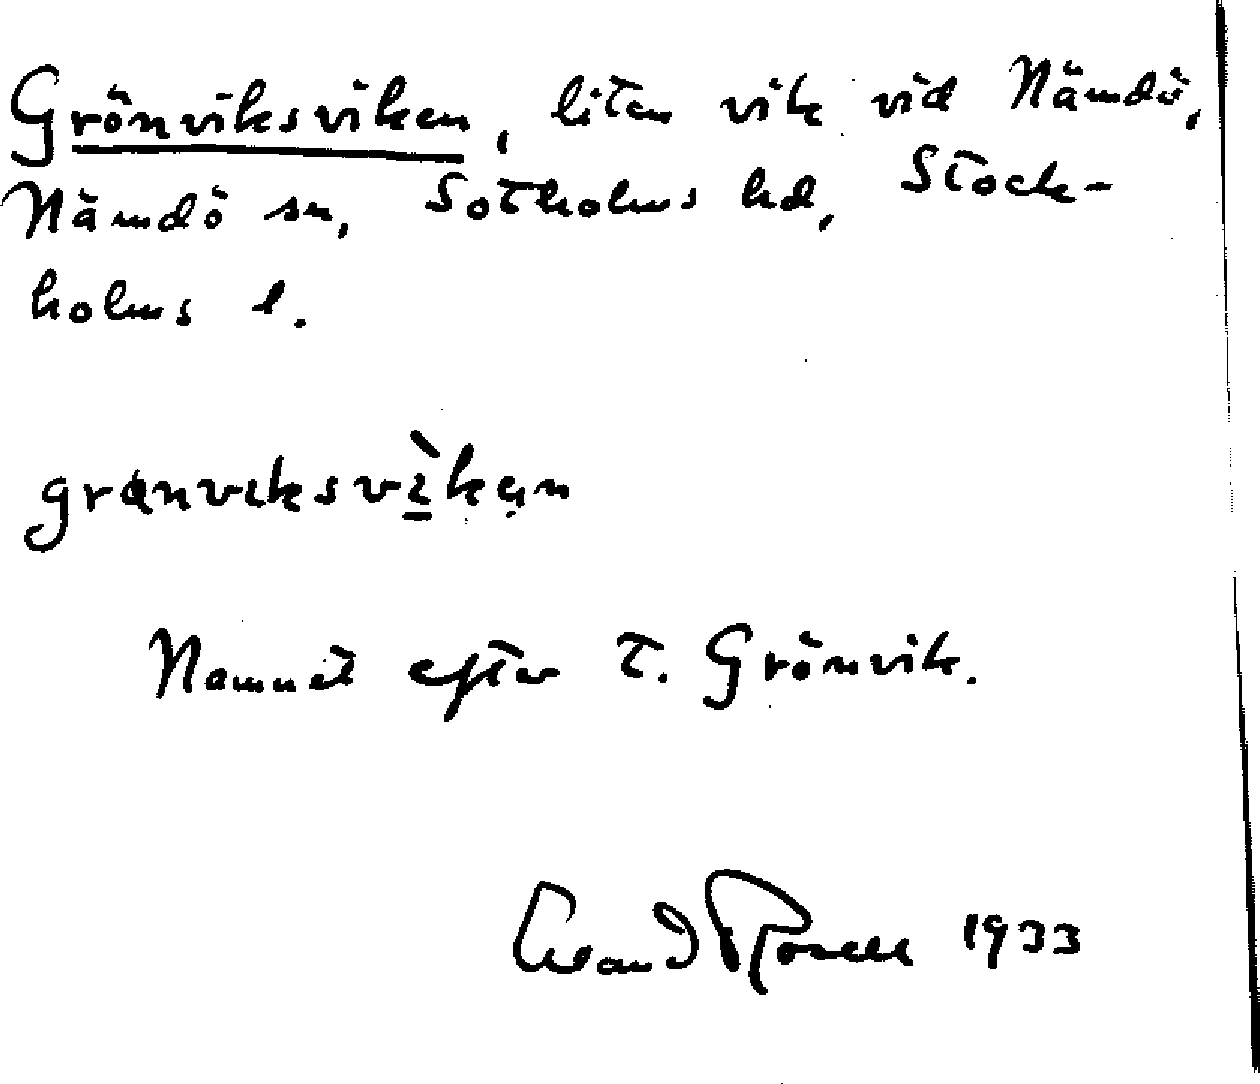 Grönviksviken, liten vik vid Nämdö,
Nämdö sn, Sotholms hd, Stock-
holms l.
grønviksvìkən
Namnet efter T. Grönvik.
Rosell 1933